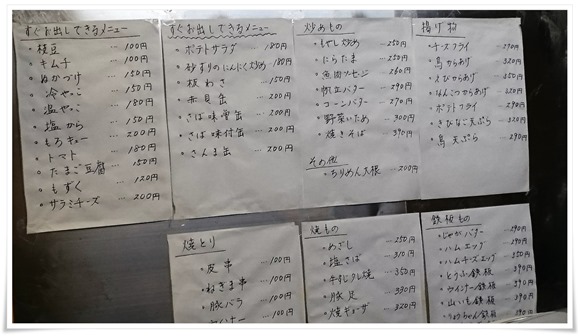 すぐお出しできるメニュー
・枝豆 … 100円
・キムチ … 100円
・ぬかづけ … 150円
・冷やっこ … 150円
・温やっこ … 180円
・塩から … 150円
・もろキュー … 200円
・トマト … 180円
・たまご豆腐 … 150円
・もずく … 120円
・サラミチーズ … 200円
すぐお出しできるメニュー
・ポテトサラダ … 180円
・砂ずりのにんにく炒め … 180円
・板わさ … 150円
・赤貝缶 … 200円
・さば味噌缶 … 200円
・さば味付缶 … 200円
・さんま缶 … 200円
炒めもの
・もやし炒め … 250円
・にらたま … 250円
・魚肉ソーセージ … 260円
・コーンバター … 290円
・野菜いため … 300円
・焼きそば … 390円
その他
・ちりめん大根 … 200円
揚げ物
・チーズフライ … 290円
・鳥からあげ … 320円
・えびからあげ … 350円
・なんこつからあげ … 320円
・ポテトフライ … 290円
・きびなご天ぷら … 320円
・鳥天ぷら … 290円
焼とり
・皮串 … 100円
・ねぎま串 … 100円
・豚バラ … 100円
焼もの
・めざし … 250円
・塩さば … 310円
・牛すじタレ焼 … 350円
・豚足 … 390円
・焼ギョーザ … 320円
鉄板もの
・じゃがバター … 290円
・ハムエッグ … 290円
・ハムチーズエッグ … 350円
・とりかわ鉄板 … 390円
・ウインナー鉄板 … 390円
・山いも鉄板 … 390円